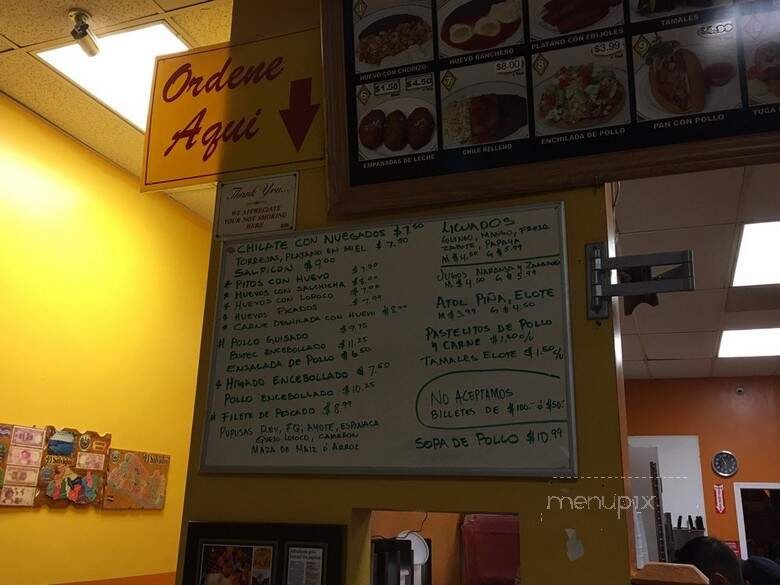 Ordene
Aqui
Thank You...
WE APPRECIATE
YOUR NOT SMOKING
HERE
HUEVO CON CHORIZO
HUEVO RANCHERO
PLATANO CON FRIJOLES
TAMALES
$1.50 $4.50
$8.00
$3.99
EMPANADAS DE LECHE
CHILE RELLENO
ENCHILADA DE POLLO
PAN CON POLLO
CHILATE CON NUEGADOS $7.50
TORREJAS, PLATANO EN MIEL $7.50
SALPICON $9.00
* PITOS CON HUEVO $7.00
* HUEVOS CON SALCHICHA $8.00
* HUEVOS CON LOROCO $7.00
* HUEVOS PICADOS $7.99
* CARNE DESHILADA CON HUEVO $8.00
# POLLO GUISADO $9.75
BISTEC ENCEBOLLADO $11.25
ENSALADA DE POLLO $6.50
HIGADO ENCEBOLLADO $7.50
POLLO ENCEBOLLADO $10.25
* FILETE DE PESCADO $8.99
PUPUSAS REV, FQ, AYOTE, ESPINACA
QUESO LOROCO, CAMARON
MAZA DE MAIZ ó ARROZ
LICUADOS
GUINEO, MANGO, FRESA
ZAPOTE, PAPAYA
M $4.50 G $5.99
JUGOS NARANJA y ZANAHORIA
M $4.50 G $5.99
ATOL PIÑA, ELOTE
M $3.99 G $4.50
PASTELITOS DE POLLO
Y CARNE $1.50 c/u
TAMALES ELOTE $1.50 c/u
NO ACEPTAMOS
BILLETES DE $100.- ó $50.-
SOPA DE POLLO $10.99
menupix